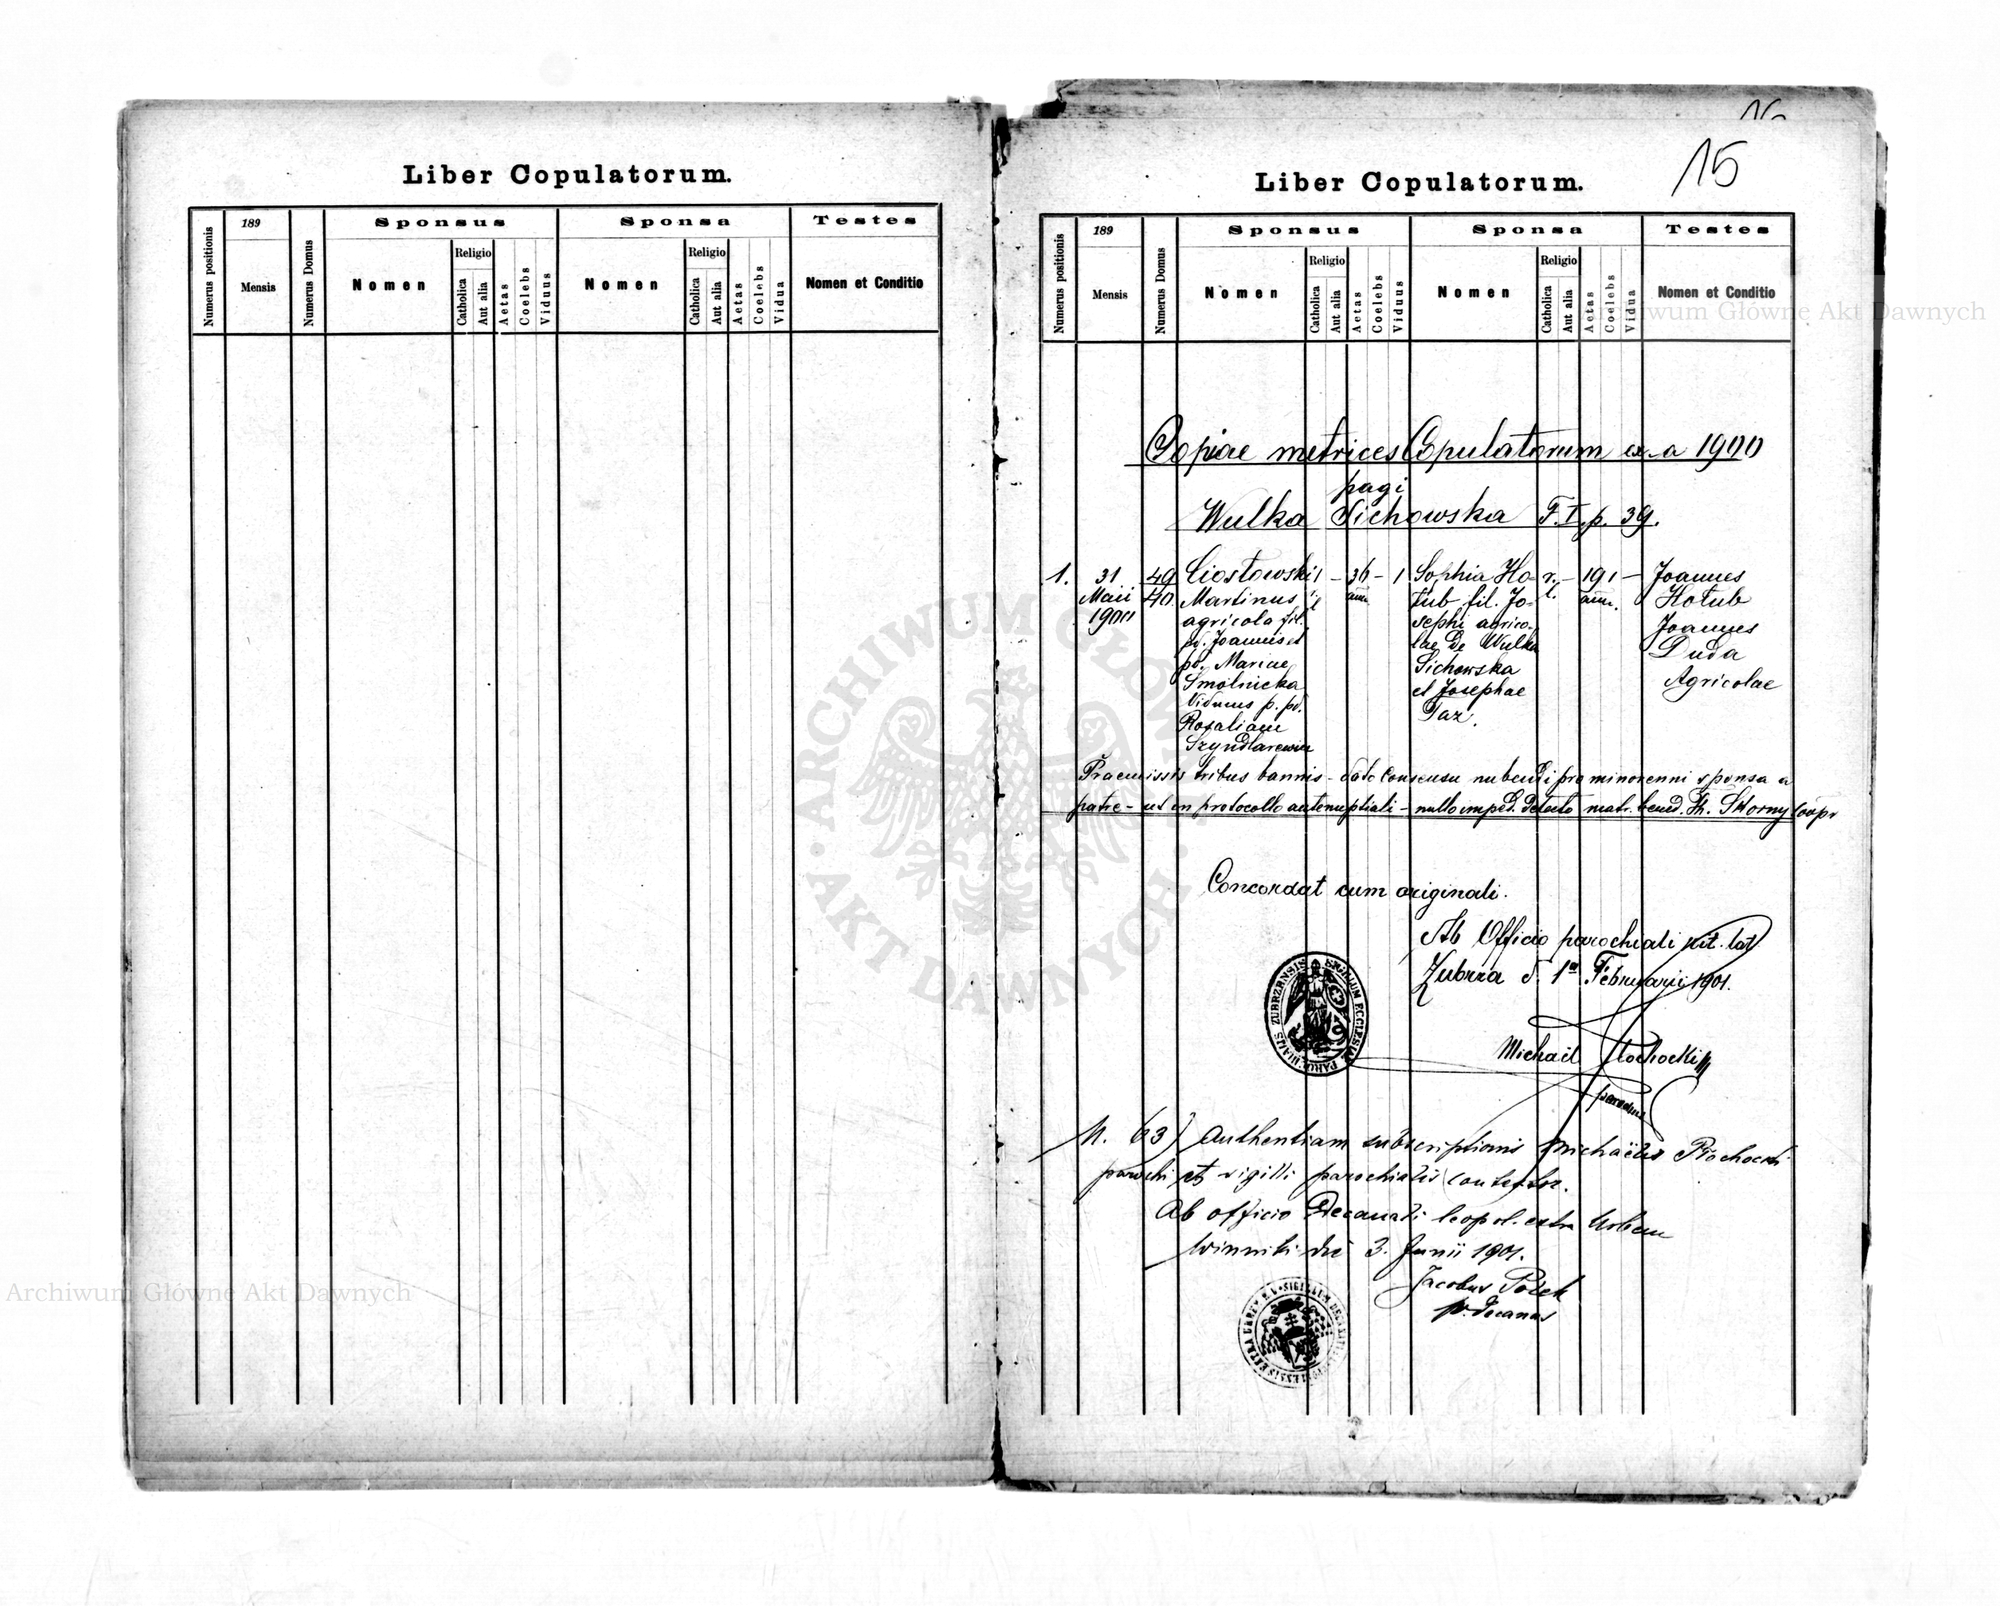 Liber Copulatorum.
Numerus positionis
189
Mensis
Numerus Domus
Sponsus
Nomen
Religio
Catholica
Aut alia
Aetas
Coelebs
Viduus
Sponsa
Nomen
Religio
Catholica
Aut alia
Aetas
Coelebs
Vidua
Testes
Nomen et Conditio
16
15
Liber Copulatorum.
Numerus positionis
189
Mensis
Numerus Domus
Sponsus
Nomen
Religio
Catholica
Aut alia
Aetas
Coelebs
Viduus
Sponsa
Nomen
Religio
Catholica
Aut alia
Aetas
Coelebs
Vidua
Testes
Nomen et Conditio
Copiae metrices Copulatorum ex a 1900
pagi
Wulka Sichowska T. I. p. 39.
1.
31
Maii
1900
49
40
Ciostowski
Martinus
agricola fil.
pd. Joannis et
pd. Mariae
Smolnicka
Viduus p. pd.
Rosaliam
1 - 36 - 1
ann.
Sophia Ho-
łub fil. Jo-
sephi agrico-
lae de Wulka
Sichowska
et Josephae
Paz.
r. - 19 1 -
l. ann.
Joannes
Hołub
Joannes
Duda
Agricolae
Praemissis tribus bannis - dato consensu nubendi pro minorenni sponsa a
patre - ut in protocollo antenuptiali - nullo imped. detecto matr. bened. Th. Skorny Coopr
Concordat cum originali.
Ab Officio parochiali rit. lat
Zubrza d. 1a Februarii 1901.
SIGILLUM ECCLESIAE PAROCHIALIS ZUBRZENSIS
Michael Płochocki
parochus
N. 63) Authentiam subscriptionis Michaëlis Płochocki
parochi et sigilli parochialis contestor.
Ab officio Decanali Leopol. extra Urbem
Winniki die 3. Junii 1901.
Jacobus
Decanus
ARCHIWUM GŁÓWNE AKT DAWNYCH
Archiwum Główne Akt Dawnych
Archiwum Główne Akt Dawnych